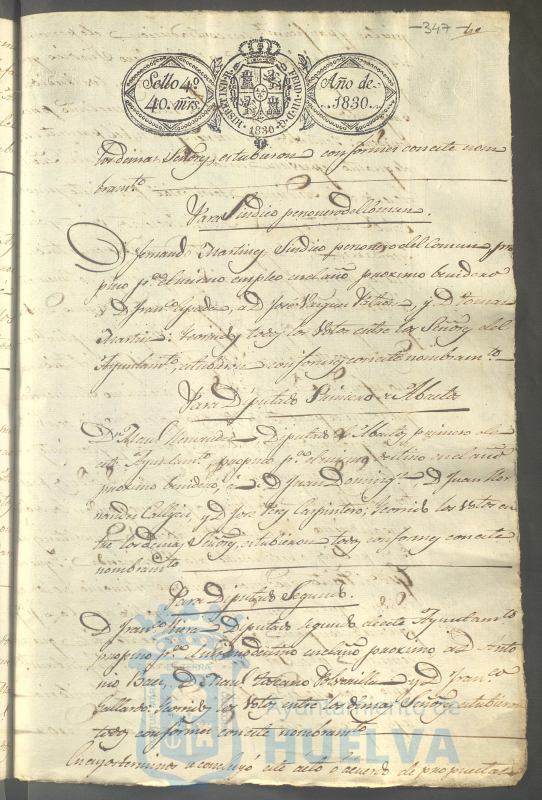 -347-
Sello 4º
40. mrs.
HISPANIAR
1830
Año de
1830.
los demas Señores, estubieron conformes con este nom
bramto
Para Sindico personero del Comun
D. Fernando Martinez Sindico personero del Comun, pro
puso pa el mismo empleo en el año proximo benidero
a D. Franco a D. Jose Vazquez y D. Tomas
Martin: y todos los Votos entre los Señores del
Ayuntamto, estubieron conformes con este nombramto
Para Diputado Primero de Abastos
Dn Manl Diputado de Abastos, primero de
este Ayuntamto, propuso pa el mismo destino en el año
proximo benidero, a D. Juan Doming D. Juan Her
nandez y D. Jose Carpintero; los Votos en
tre los demas Señores, estubieron todos conformes con este
nombramto
Para Diputado Segundo.
D. Franco Diputado segundo de este Ayuntamto
propuso pa en el año proximo a D. Anto
nio Baez, D. Manl y D. Franco
Gallardo: los Votos entre los demas Señores estubieron
todos conformes con este nombramto
En cuyos terminos se concluyó este acto o acuerdo de propuestas
Ayuntamiento de
HUELVA